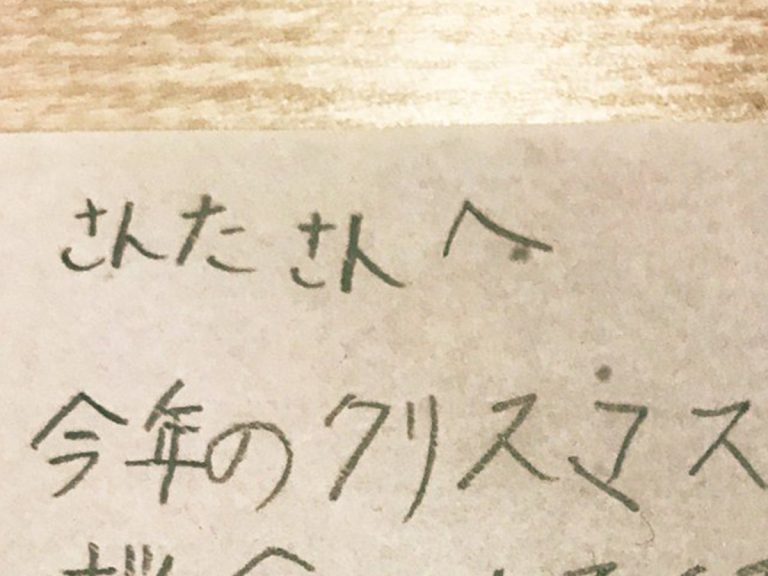 さんたさんへ
今年のクリスマス